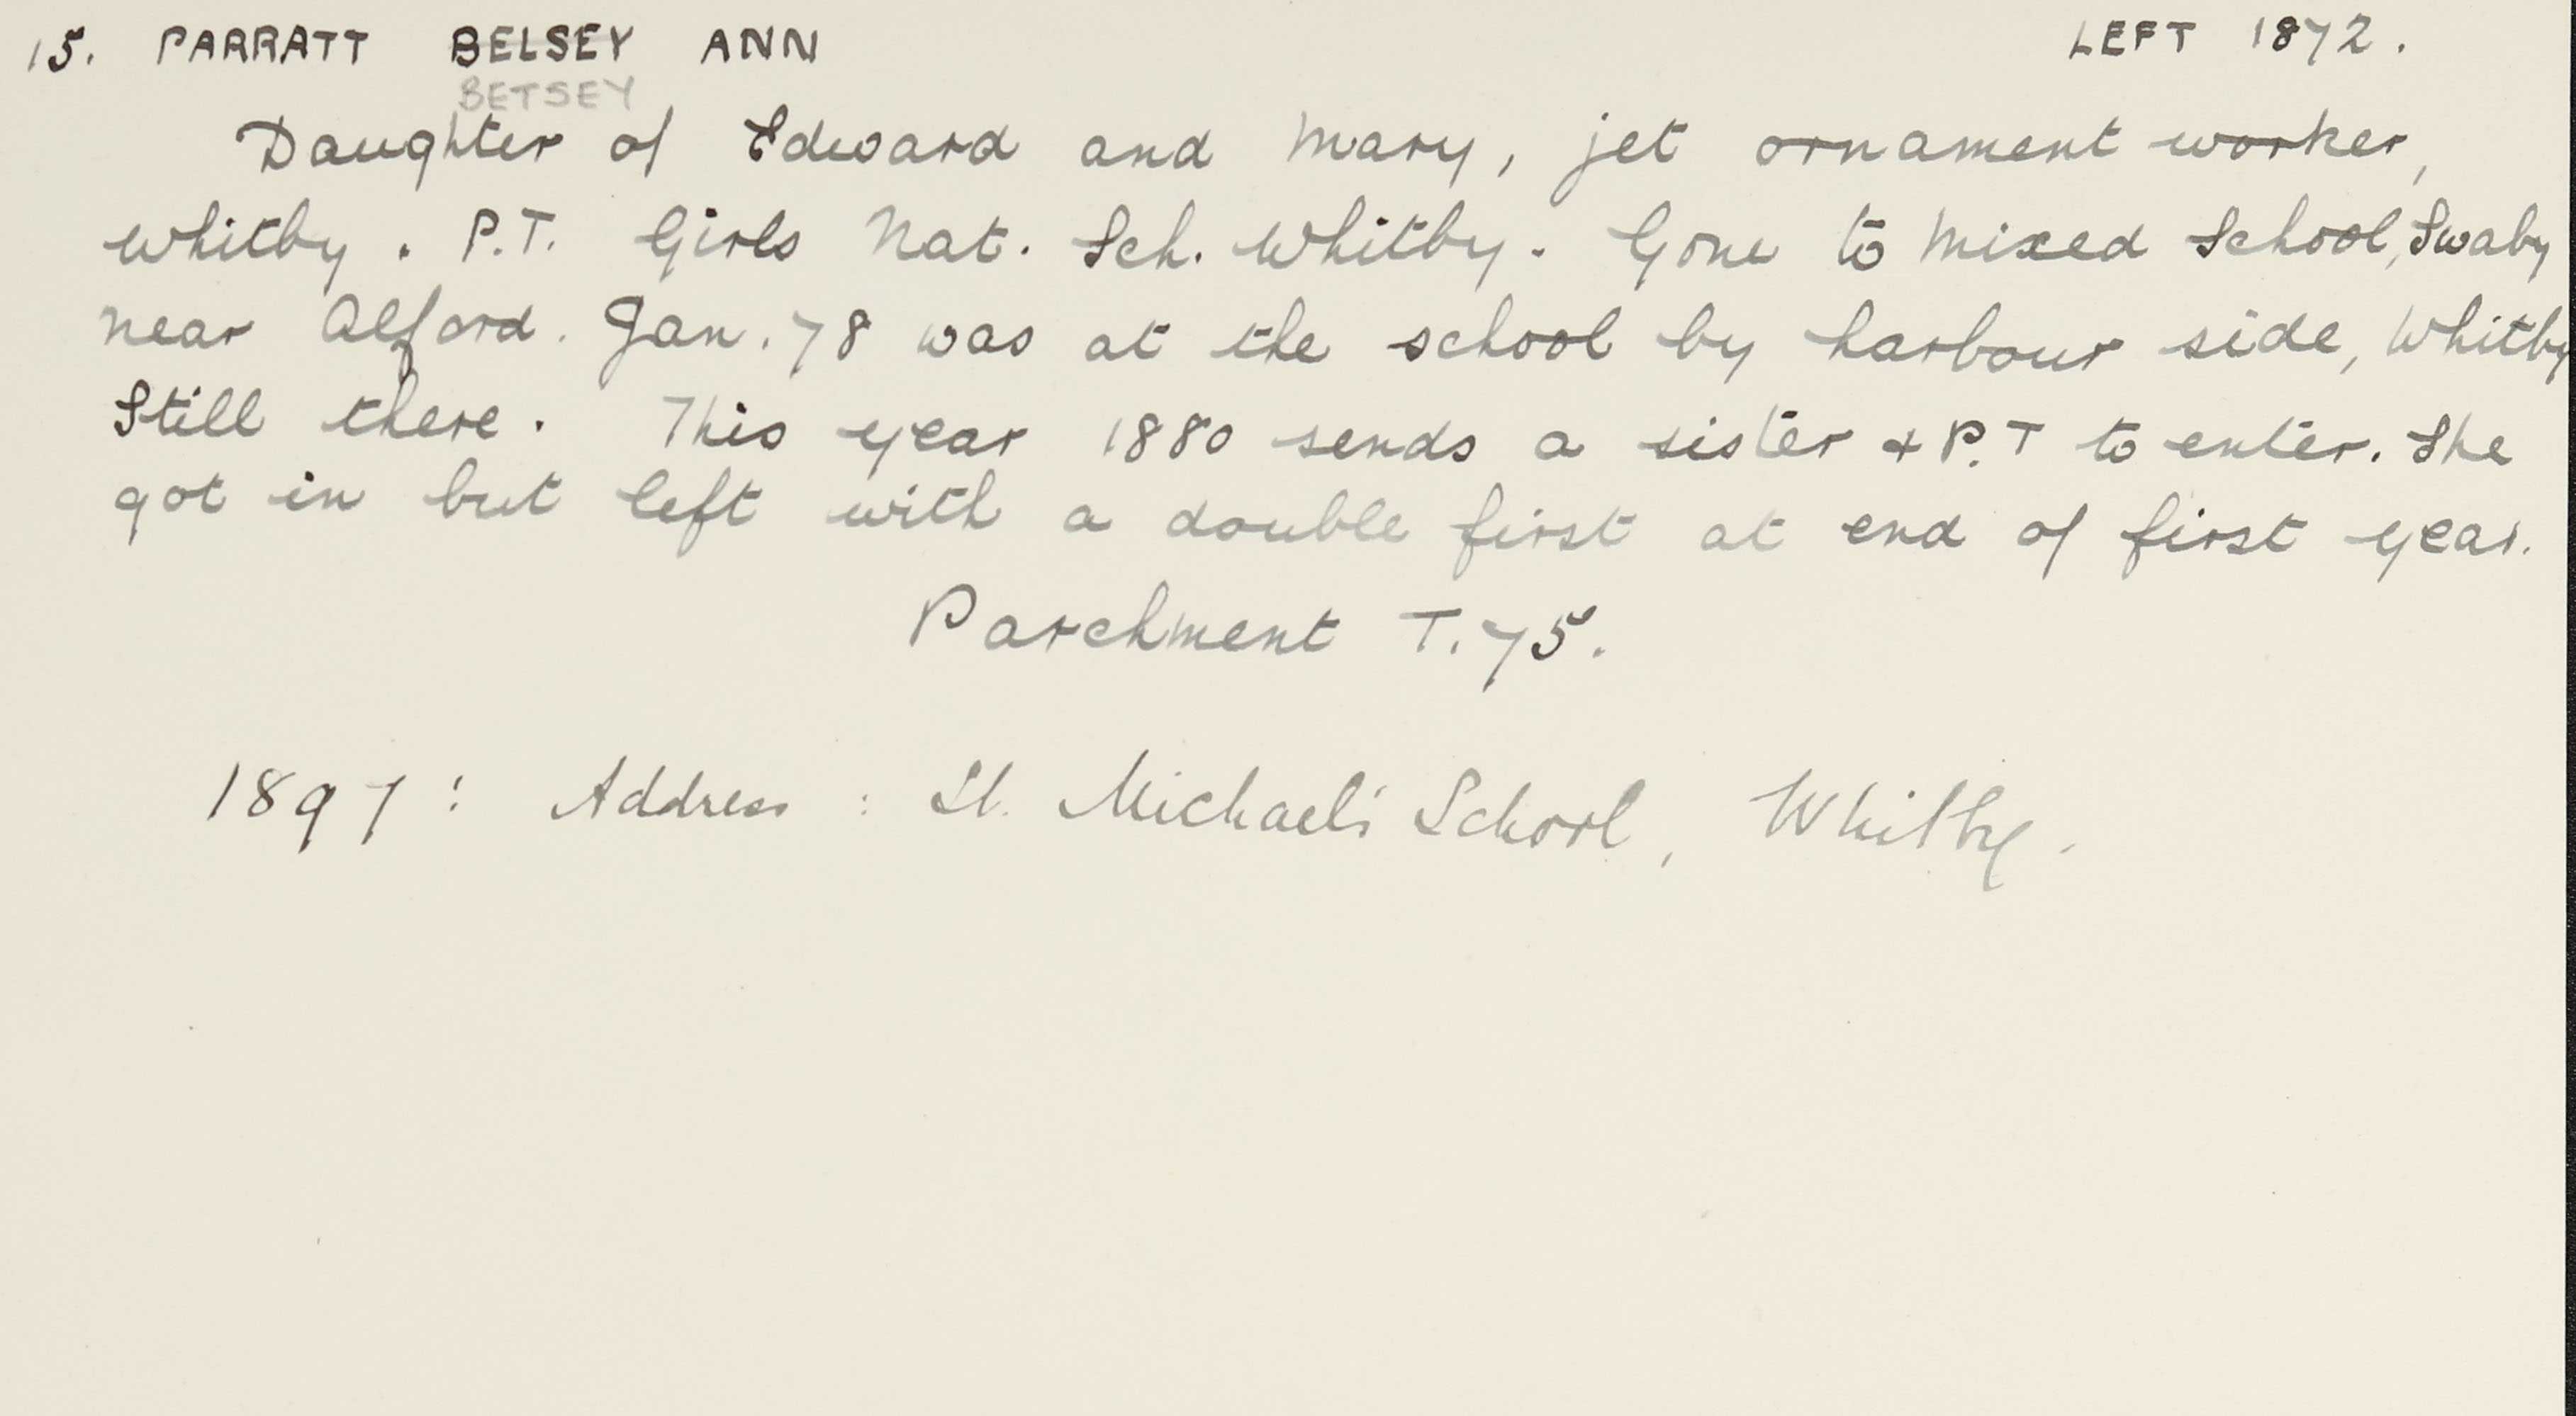 15. PARRATT BELSEY ANN LEFT 1872.
BETSEY
Daughter of Edward and Mary, jet ornament worker,
Whitby. P.T. Girls Nat. Sch. Whitby. Gone to Mixed School, Swaby
near Alford. Jan. 78 was at the school by harbour side, Whitby
Still there. This year 1880 sends a sister & P.T to enter. She
got in but left with a double first at end of first year.
Parchment T. 75.
1897: Address: St. Michael's School, Whitby.